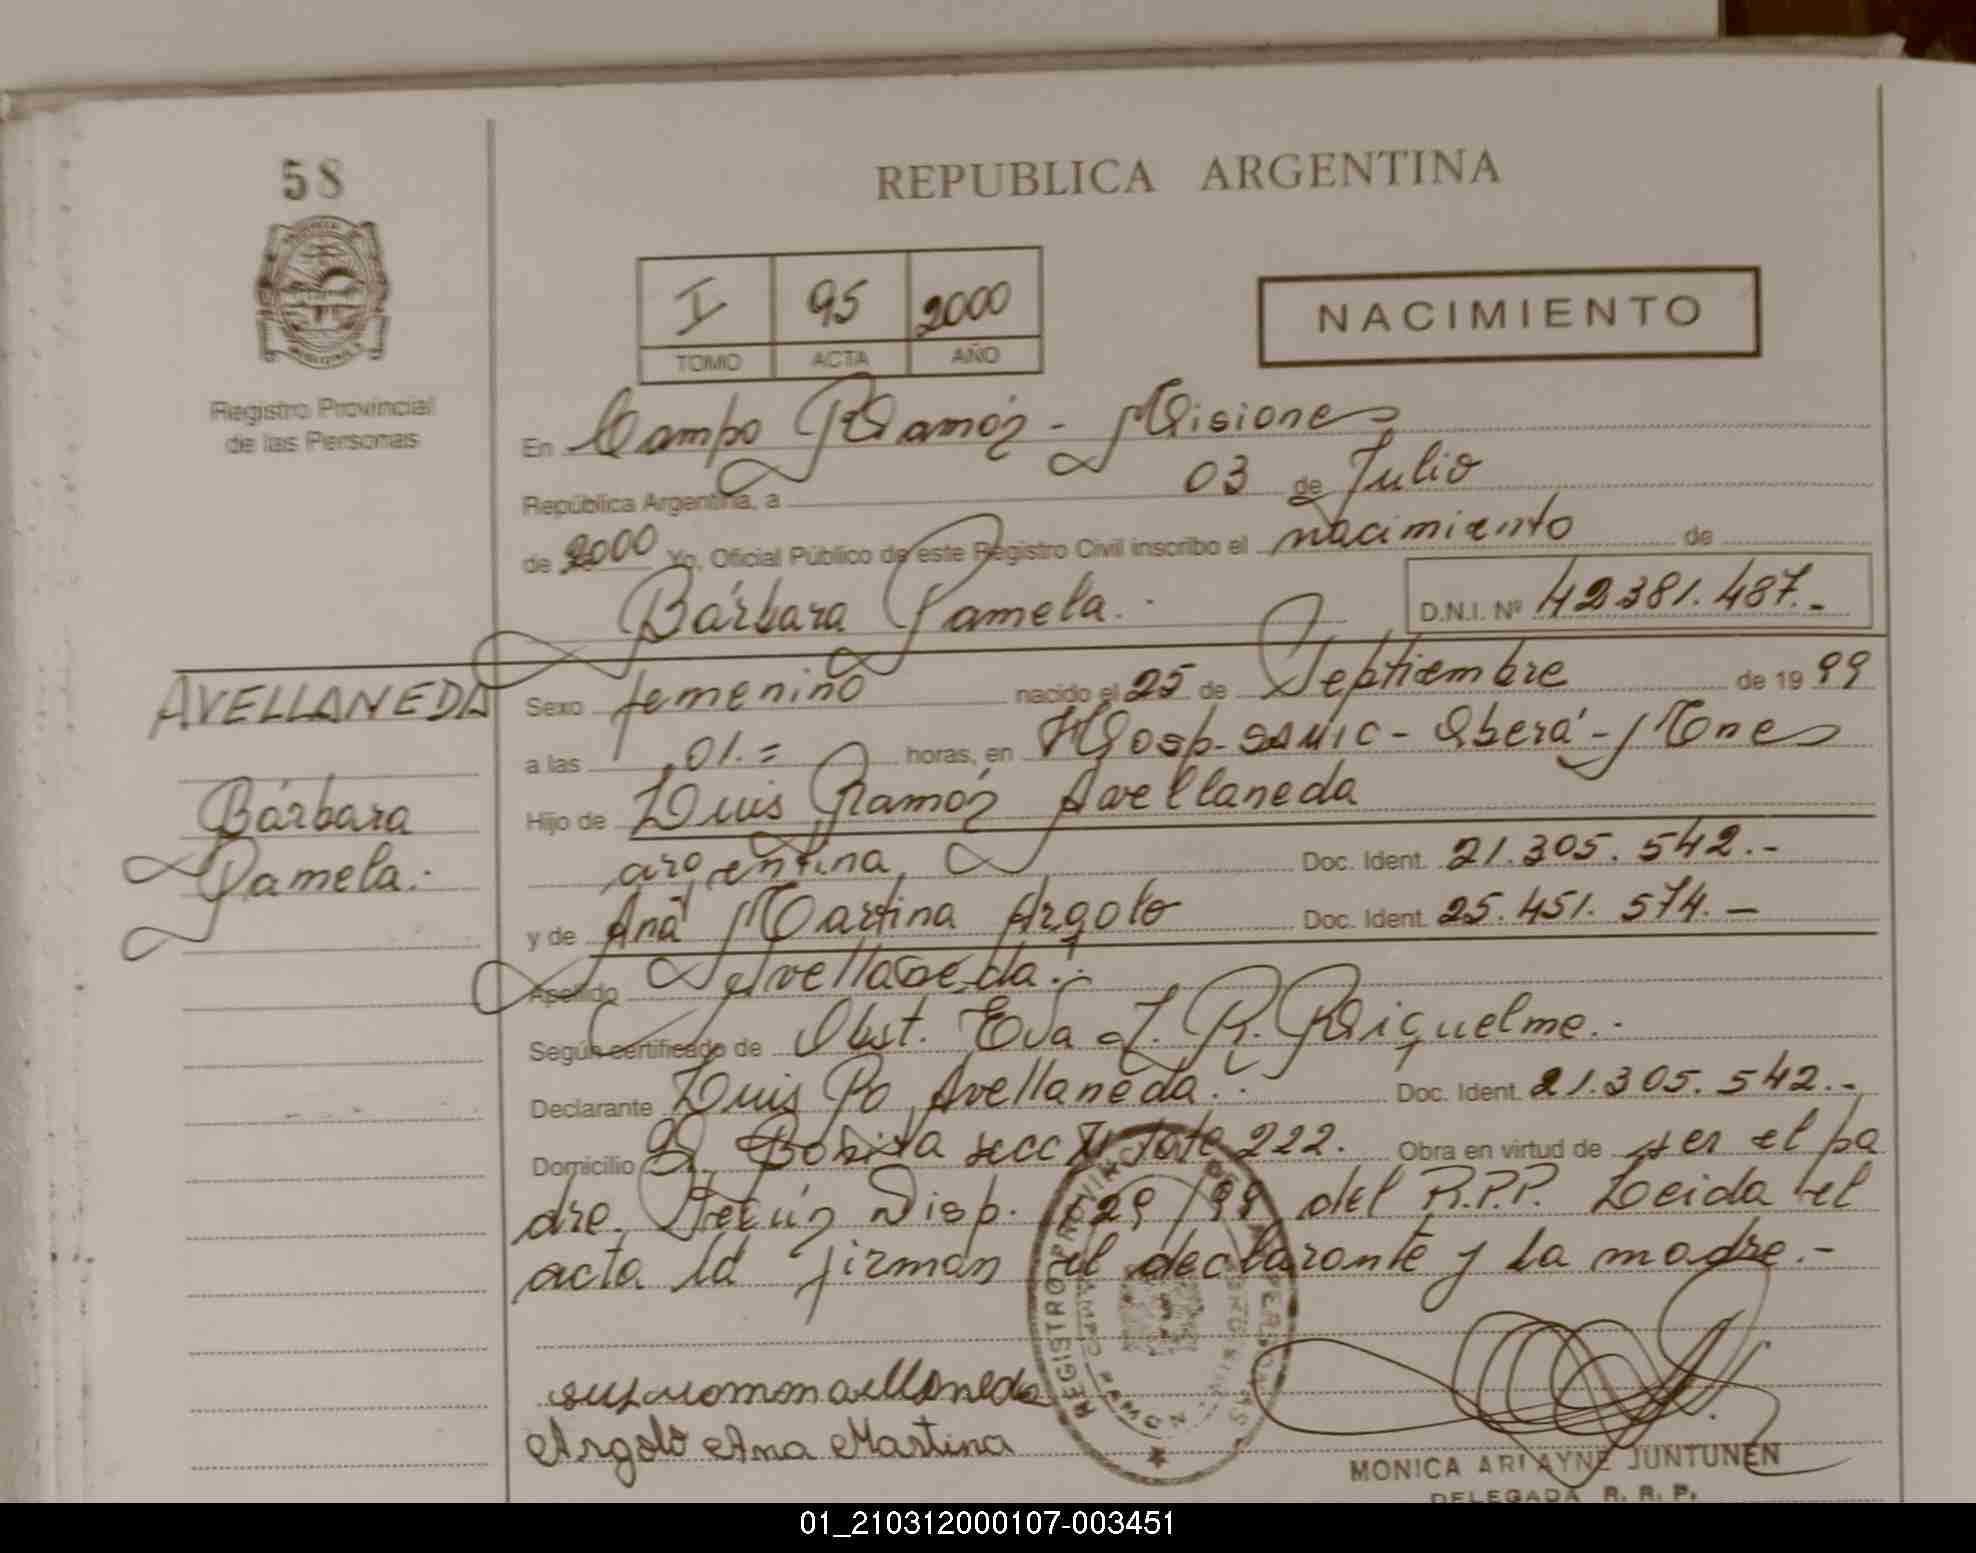 58
REPUBLICA ARGENTINA
I 95 2000
TOMO ACTA AÑO
NACIMIENTO
Registro Provincial
de las Personas
En Campo Ramón - Misiones
República Argentina, a 03 de Julio
de 2000 Yo, Oficial Público de este Registro Civil inscribo el nacimiento de
Bárbara Pamela.-
D.N.I. Nº 42381.487.-
AVELLANEDA
Bárbara
Pamela.-
Sexo femenino nacido el 25 de Septiembre de 19 99
a las 01.= horas, en Hosp. SAMIC - Oberá - Mnes
Hijo de Luis Ramón Avellaneda
argentina Doc. Ident. 21.305.542.-
y de Ana Martina Argolo Doc. Ident. 25.451.574.-
Apellido Avellaneda.-
Según certificado de Obst. Eva J. R. Riquelme.-
Declarante Luis Rº Avellaneda.- Doc. Ident. 21.305.542.-
Domicilio secc lote 222. Obra en virtud de ser el pa
dre. Según Disp. /99 del R.P.P. Leida el
acta la firman el declarante y la madre.-
Argolo Ana Martina
REGISTRO PROVINCIAL DE LAS PERSONAS
MONICA ARLAYNE JUNTUNEN
DELEGADA R. R. P.
01_210312000107-003451